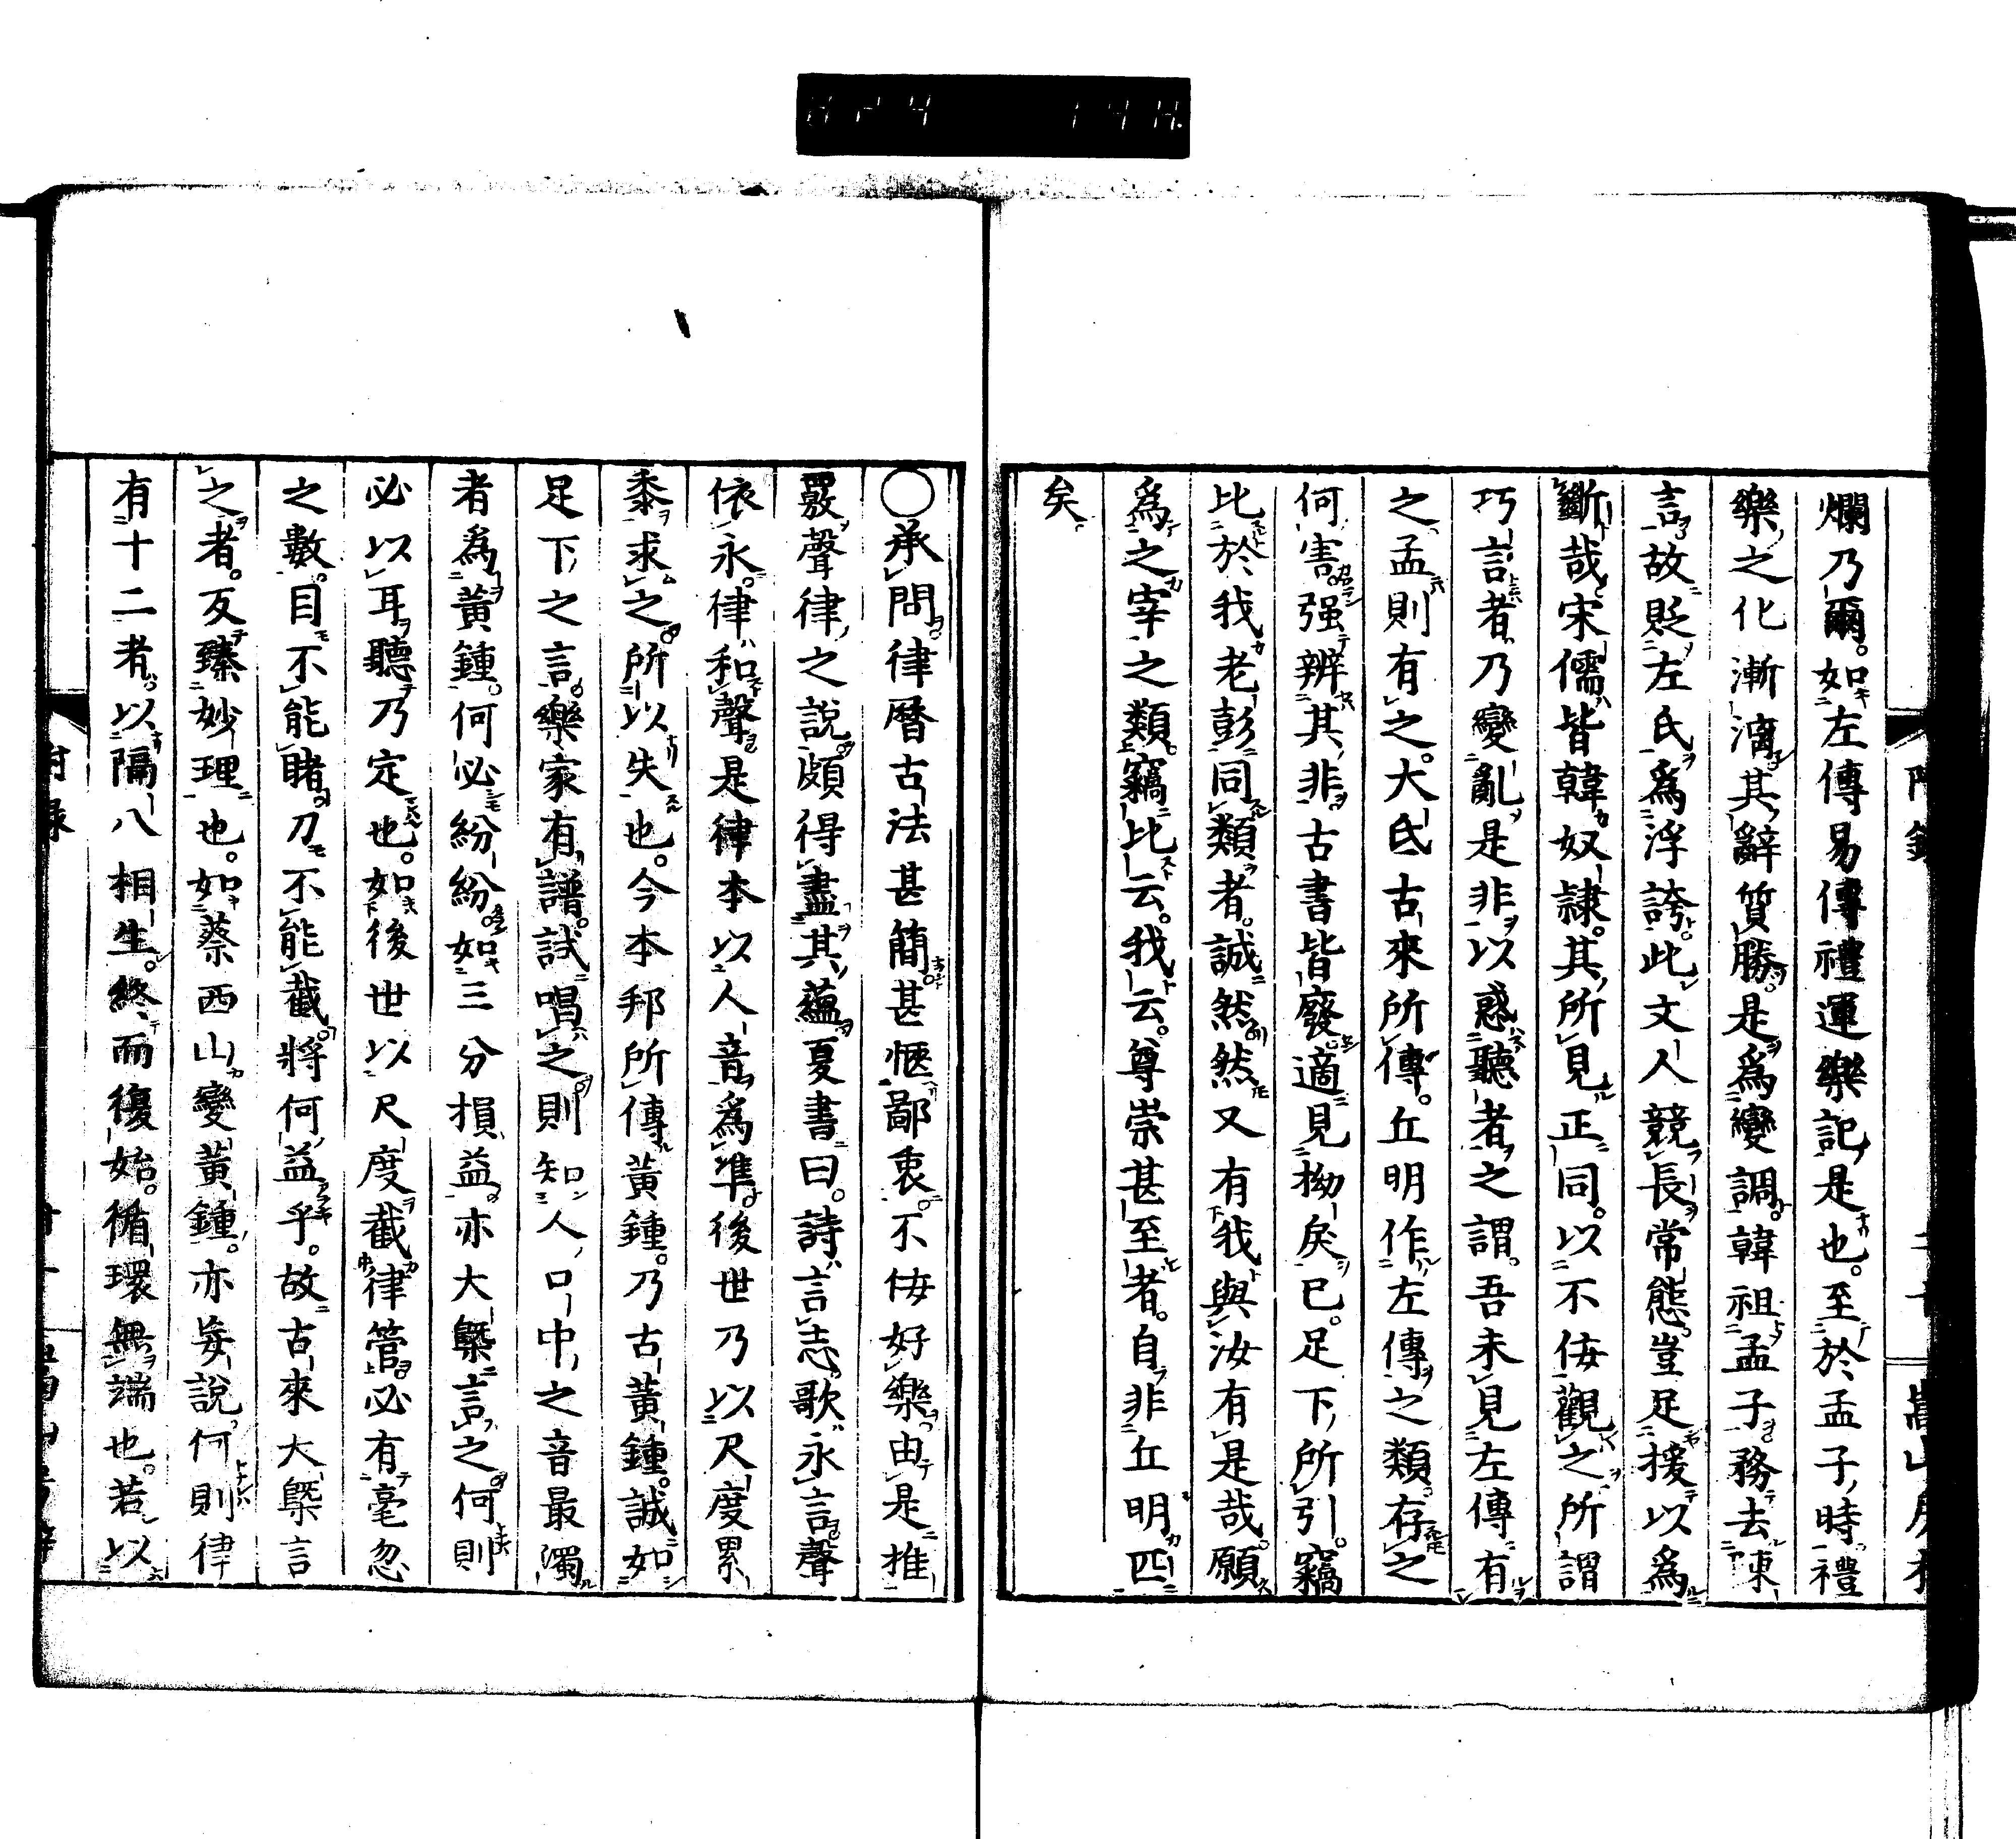 爛乃爾。如左傳易傳禮運樂記是也。至於孟子時禮
樂之化漸漓其辭質勝。是爲變調。韓祖孟子。務去陳
言。故貶左氏爲浮誇。此文人競長常態。豈足援以爲
斷哉。宋儒皆韓奴隷。其所見正同。以不佞觀之。所謂
巧言者。乃變亂是非以惑聽者之謂。吾未見左傳有
之。孟則有之。大氐古來所傳。丘明作左傳之類。存之
何害。强辨其非。古書皆廢。適見拗戾已。足下所引。竊
比於我老彭。同類者。誠然然。又有我與汝有是哉。願
爲之宰之類。竊比云。我云。尊崇甚至者。自非丘明匹
矣
○承問律曆古法甚簡甚愜鄙衷。不佞好樂。由是推
覈聲律之說。頗得盡其蘊。夏書曰。詩言志。歌永言。聲
依永。律和聲。是律本以人音爲準。後世乃以尺度累
黍求之。所以失也。今本邦所傳黃鍾。乃古黃鍾。誠如
足下之言。樂家有譜。試唱之則知人口中之音最濁
者爲黃鍾。何必紛紛。如三分損益。亦大槩言之。何則
必以耳聽乃定也。如後世以尺度截律管。必有毫忽
之數。目不能睹。刀不能截。將何益乎。故古來大槩言
之者。反臻妙理也。如蔡西山變黃鍾。亦妄說。何則律
有十二者。以隔八相生。終而復始。循環無端也。若以